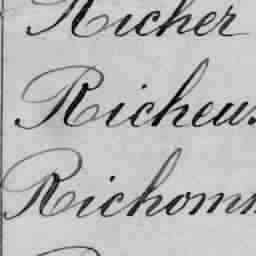 Richer
Richeus
Richomm